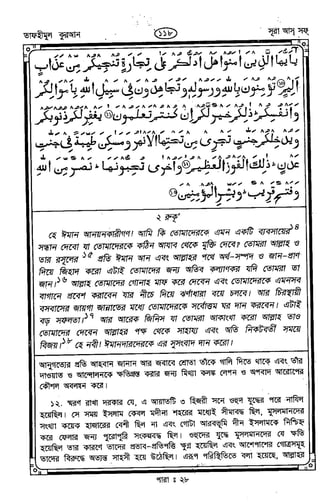 তাফহীমুল কুরআন
১১৮
সূরা আস্ সফ্
يٰۤاَيُّهَا الَّذِيْنَ اٰمَنُوْا هَلْ اَدُلُّكُمْ عَلٰى تِجَارَةٍ تُنْجِيْكُمْ مِّنْ عَذَابٍ
اَلِيْمٍ⑩ تُؤْمِنُوْنَ بِاللّٰهِ وَرَسُوْلِهٖ وَتُجَاهِدُوْنَ فِيْ سَبِيْلِ اللّٰهِ بِاَمْوَالِكُمْ
وَاَنْفُسِكُمْ ذٰلِكُمْ خَيْرٌ لَّكُمْ اِنْ كُنْتُمْ تَعْلَمُوْنَ⑪ يَغْفِرْ لَكُمْ ذُنُوْبَكُمْ
وَيُدْخِلْكُمْ جَنّٰتٍ تَجْرِيْ مِنْ تَحْتِهَا الْاَنْهٰرُ وَمَسٰكِنَ طَيِّبَةً فِيْ جَنّٰتِ
عَدْنٍ ذٰلِكَ الْفَوْزُ الْعَظِيْمُ⑫ وَاُخْرٰى تُحِبُّوْنَهَا نَصْرٌ مِّنَ اللّٰهِ
وَفَتْحٌ قَرِيْبٌ وَبَشِّرِ الْمُؤْمِنِيْنَ⑬
২ রুকূ'
হে ঈমান আনয়নকারীগণ! আমি কি তোমাদেরকে এমন একটি ব্যবসায়ের১৪
সন্ধান দেবো যা তোমাদেরকে কঠিন আযাব থেকে মুক্তি দেবে? তোমরা আল্লাহ ও
তার রসূলের১৫ প্রতি ঈমান আন এবং আল্লাহর পথে অর্থ-সম্পদ ও জান-প্রাণ
দিয়ে জিহাদ করো এটাই তোমাদের জন্য অতিব কল্যাণকর যদি তোমরা তা
জান।১৬ আল্লাহ তোমাদের গোনাহ মাফ করে দেবেন এবং তোমাদেরকে এমনসব
বাগানে প্রবেশ করাবেন যার নীচে দিয়ে ঝর্ণাধারা বয়ে চলবে। আর চিরস্থায়ী
বসবাসের জায়গা জান্নাতের মধ্যে তোমাদেরকে সর্বোত্তম ঘর দান করবেন। এটাই
বড় সফলতা।১৭ আর আরেক জিনিস যা তোমরা আকাংখা করো আল্লাহ তাও
তোমাদের দেবেন আল্লাহর পক্ষ থেকে সাহায্য এবং অতি নিকটবর্তী সময়ে
বিজয়।১৮ হে নবী! ঈমানদারদেরকে এর সুসংবাদ দান করো।
আনুগত্যের প্রতি আহবান জানান আর জবাবে শ্রোতা তাঁকে গালি দিতে থাকে এবং তাঁর
দাওয়াত ও আন্দোলনকে ক্ষতিগ্রস্ত করার জন্য মিথ্যা কলঙ্ক লেপন ও অপবাদ আরোপের
কৌশল অবলম্বন করে।
১২. স্মরণ রাখা দরকার যে, এ আয়াতটি ৩ হিজরী সনে ওহুদ যুদ্ধের পরে নাযিল
হয়েছিল। সে সময় ইসলাম কেবল মদীনা শহরের মধ্যেই সীমাবদ্ধ ছিল, মুসলমানদের
সংখ্যা কয়েক হাজারের বেশী ছিল না এবং গোটা আরবভূমী দীন ইসলামকে নিশ্চিহ্ন
করে ফেলার জন্য পুরোপুরি সংকল্পবদ্ধ ছিল। ওহুদের যুদ্ধে মুসলমানদের যে ক্ষতি
হয়েছিল তার কারণে তাদের প্রভাব-প্রতিপত্তি ক্ষুণ্ন হয়েছিল এবং আশেপাশের গোত্রসমূহ
তাদের বিরুদ্ধে অত্যন্ত সাহসী হয়ে উঠেছিল। এরূপ পরিস্থিতিতে বলা হয়েছে, আল্লাহর
পারা : ২৮